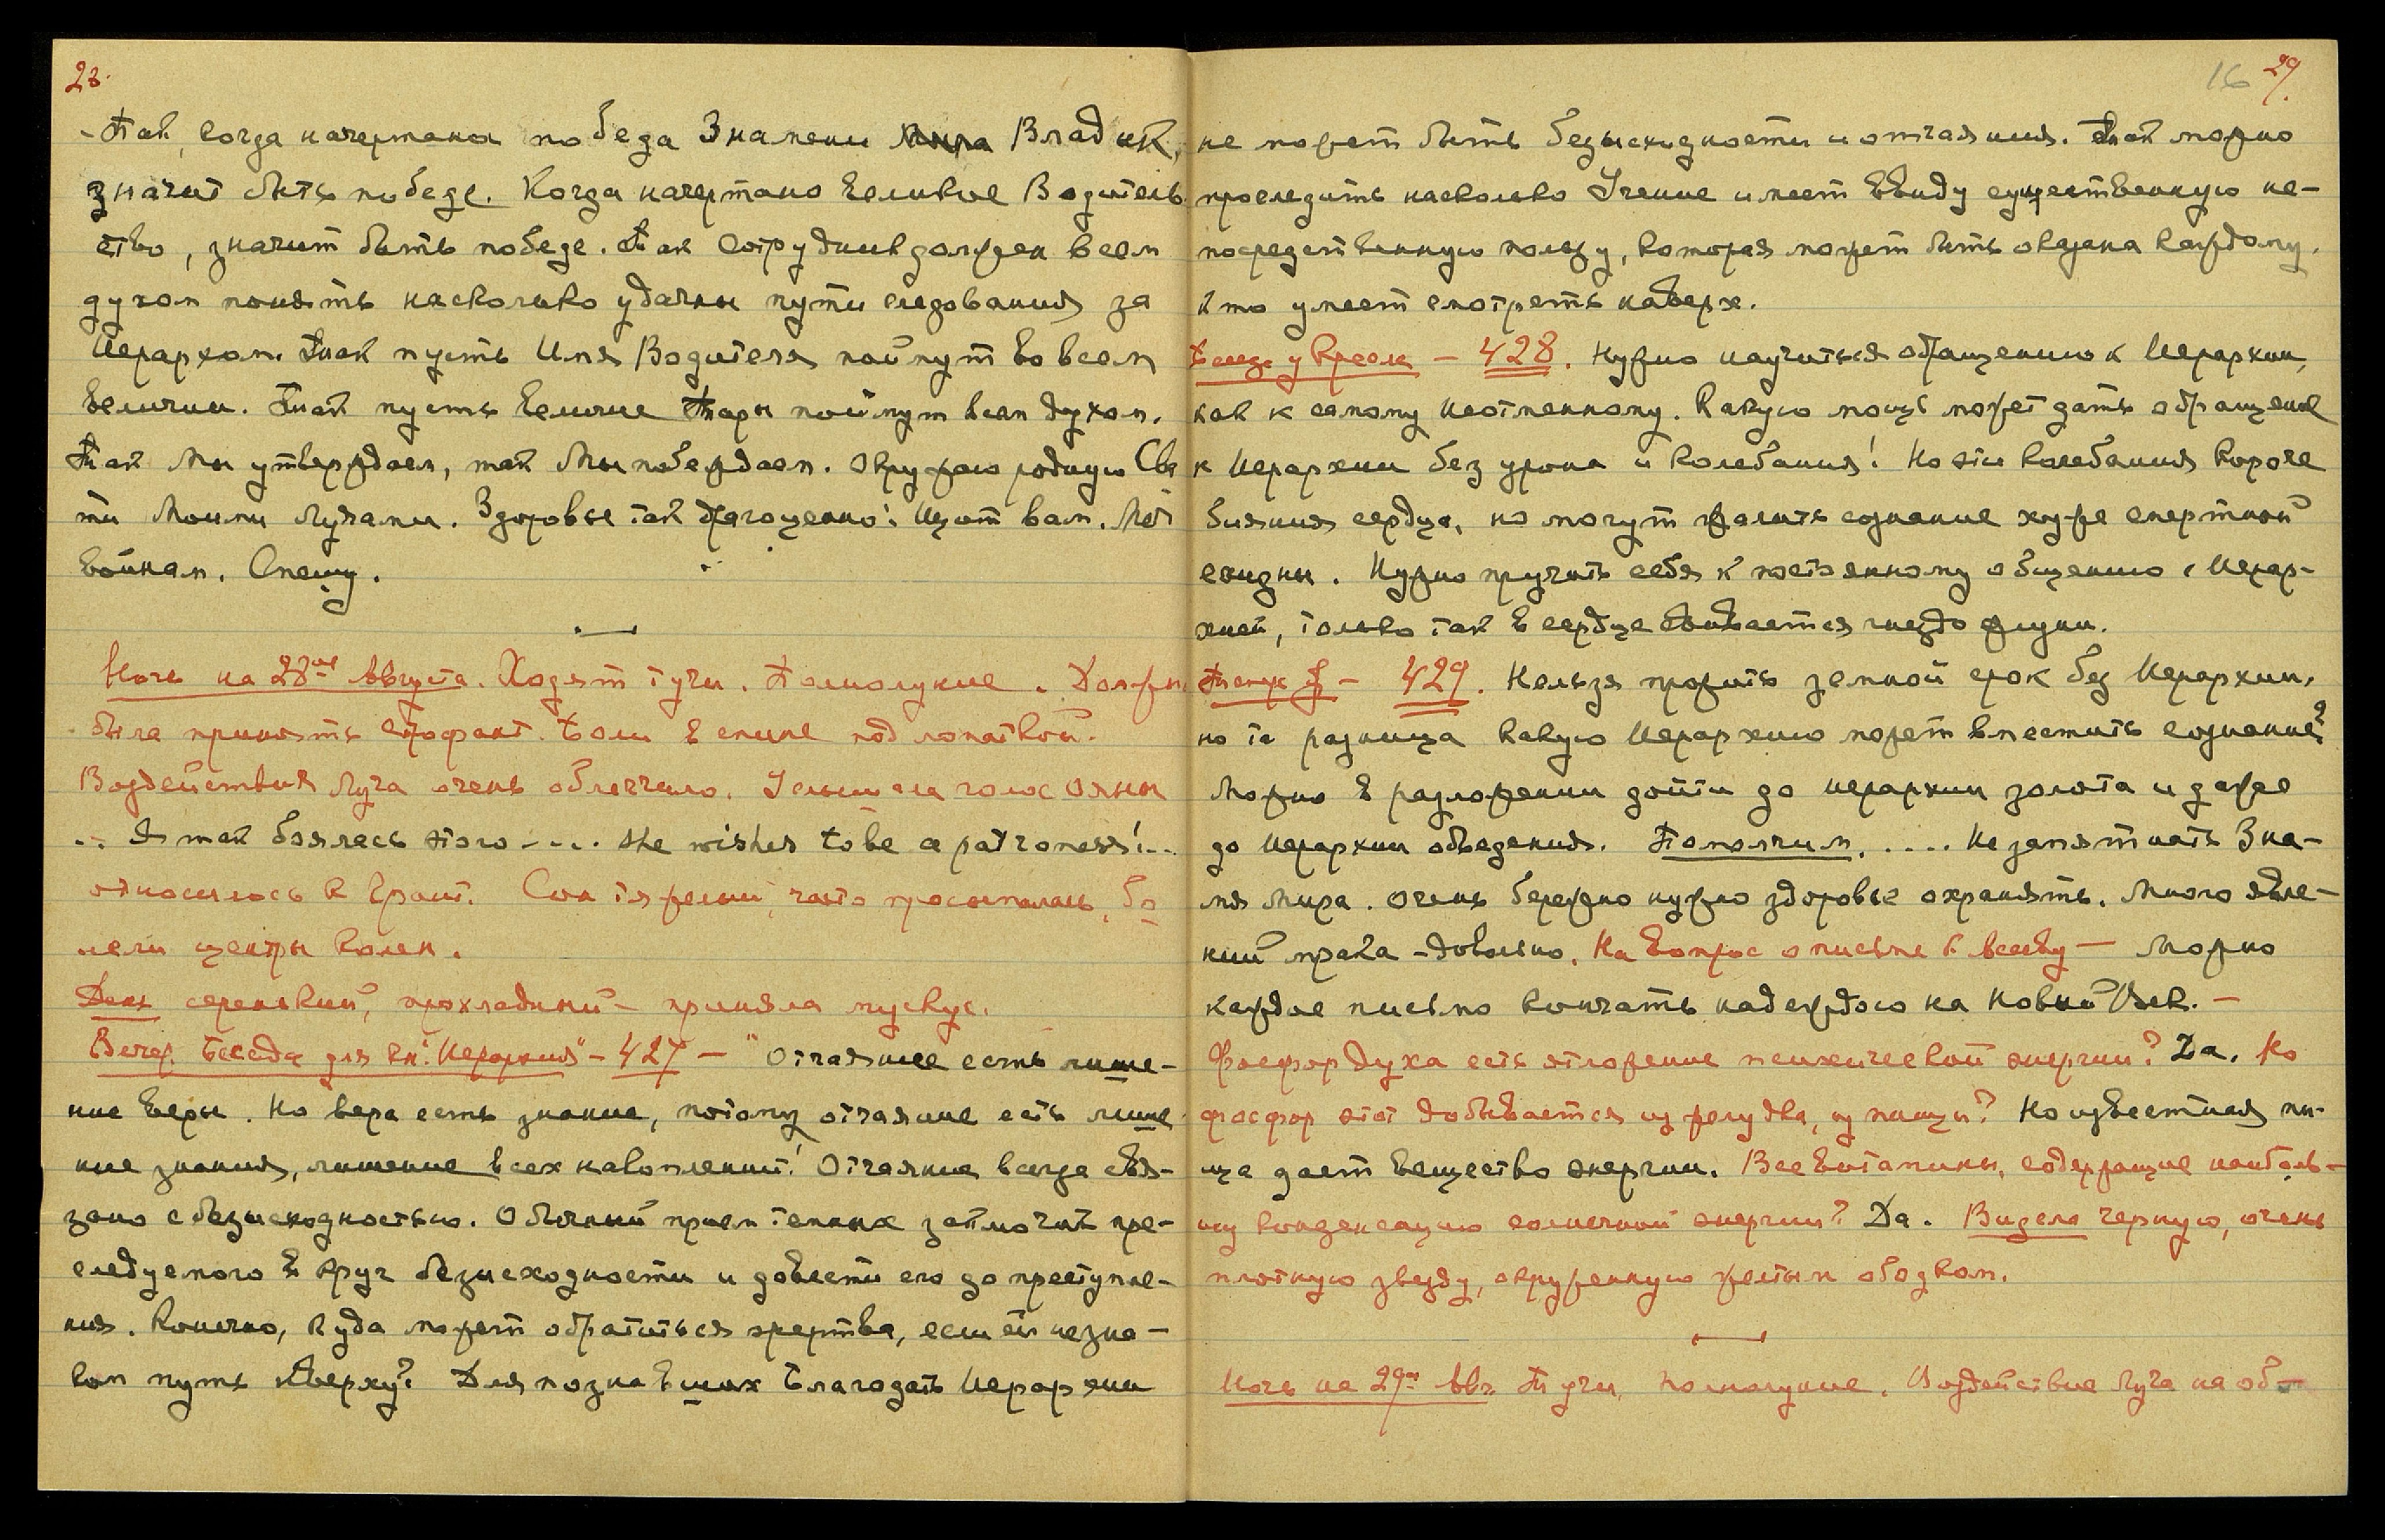 28.
- Так, когда начертана победа Знамени Мира Владык,
значит быть победе. Когда начертано великое Водитель-
ство, значит быть победе. Так сотрудник должен всем
духом понять насколько удачны пути следования за
Иерархом. Так пусть Имя Водителя поймут во всем
величии. Так пусть величие Тары поймут всем духом.
Так Мы утверждаем, так Мы побеждаем. Окружаю родную Свя
ти Моими Лучами. Здоровье так драгоценно! Щит вам, Мой
войнам. Спешу.
Ночь на 28ое Августа. Ходят тучи. Полнолуние. Должн
была принять строфант. Боли в спине под лопаткой.
Воздействия Луча очень облегчало. Услышала голос Ояны
... Я так боялась этого .... she wishes to be a patroness!...
относилось к Грант. Сон тяжелый, часто просыпалась, бо
лели центры колен.
День серенький, прохладный - приняла мускус.
Вечер. Беседа для кн. "Иерархия" - 427 - "Отчаяние есть лише-
ние веры. Но вера есть знание, потому отчаяние есть лише
ние знания, лишение всех накоплений! Отчаяние всегда свя-
зано с безысходностью. Обычный прием темных заключить пре-
следуемого в круг безысходности и довести его до преступле-
ния. Конечно, куда может обратиться жертва, если ей незна-
ком путь кверху? Для познавших Благодать Иерархии
16 29.
не может быть безысходности и отчаяния. Так можно
проследить насколько Учение имеет ввиду существенную не-
посредственную пользу, которая может быть оказана каждому,
кто умеет смотреть наверх.
Беседа у кресла - 428. Нужно научиться обращению к Иерархии,
как к самому неотменному. Какую мощь может дать обращение
к Иерархии без урона и колебания! Но эти колебания короче
биения сердца, но могут жалить сознание хуже смертной
ехидны. Нужно приучить себя к постоянному общению с Иерар-
хией, только так в сердце свивается гнездо жизни.
429. Нельзя прожить земной срок без Иерархии,
но та разница какую Иерархию может вместить сознание?
Можно в разложении дойти до иерархии золота и даже
до иерархии объедения. Помолчим. .... Не запятнать Зна-
мя Мира. Очень бережно нужно здоровье охранять. Много явле-
ний мрака - довольно. На вопрос о письме к всему — Можно
каждое письмо кончать надеждою на Новый Век. -
Фосфор духа есть отложение психической энергии? Да. Но
фосфор этот добывается из желудка, из пищи? Но известная пи-
ща дает вещество энергии. Все витамины, содержащие наиболь-
шу конденсацию солнечной энергии? Да. Видела черную, очень
плотную звезду, окруженную желтым ободком.
Ночь на 29ое Авг. Тучи, полнолуние. Воздействие Луча на об-